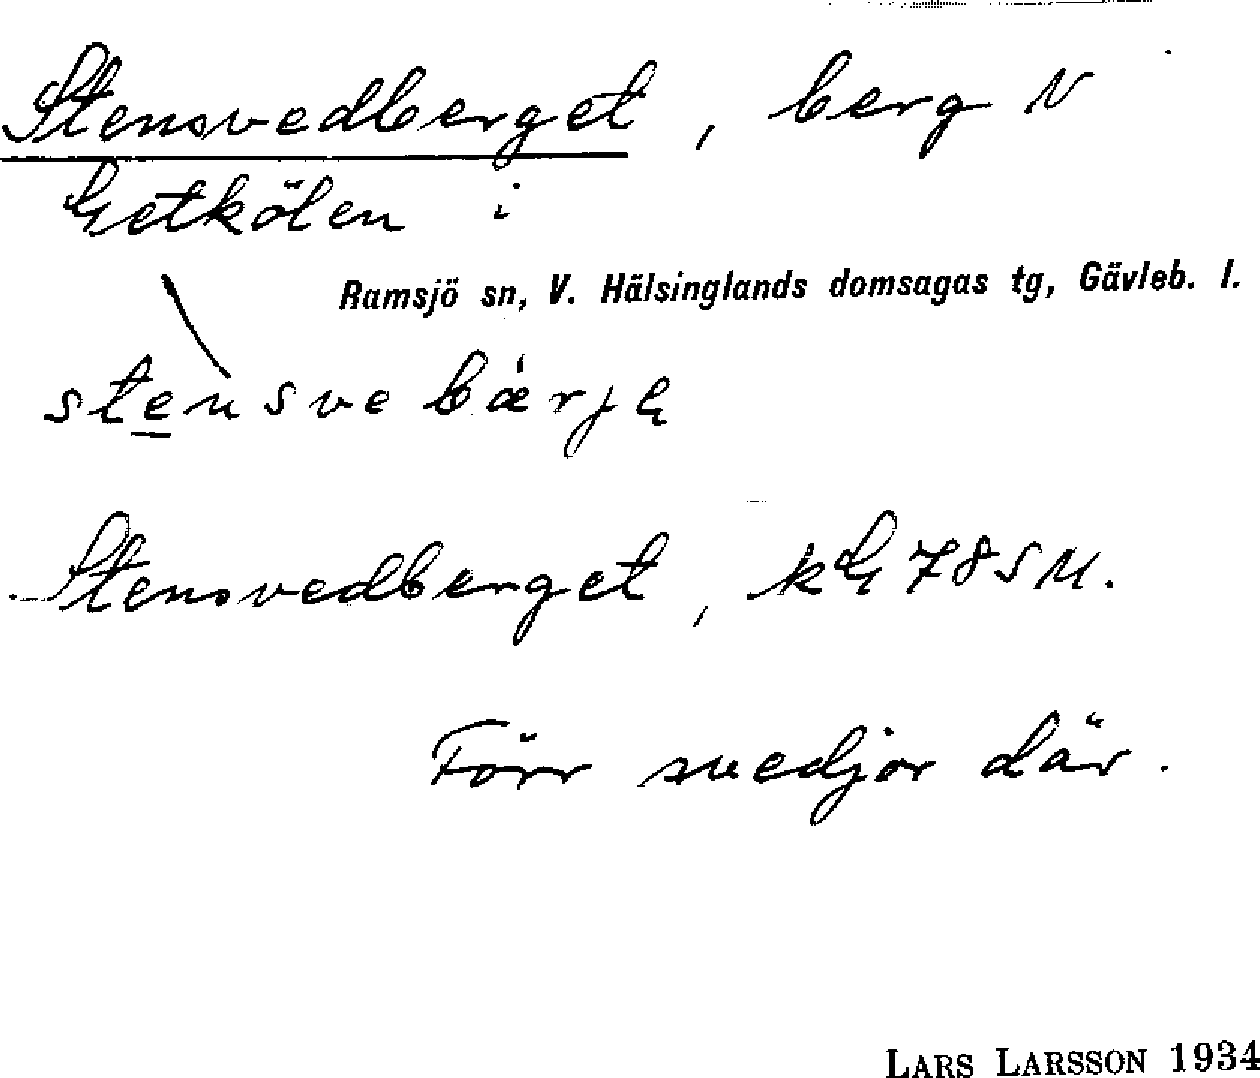 Stensvedberget, berg N
Getkölen i
Ramsjö sn, V. Hälsinglands domsagas tg, Gävleb. l.
Stensvedberget, kG 785 M.
Förr svedjor där.
LARS LARSSON 1934